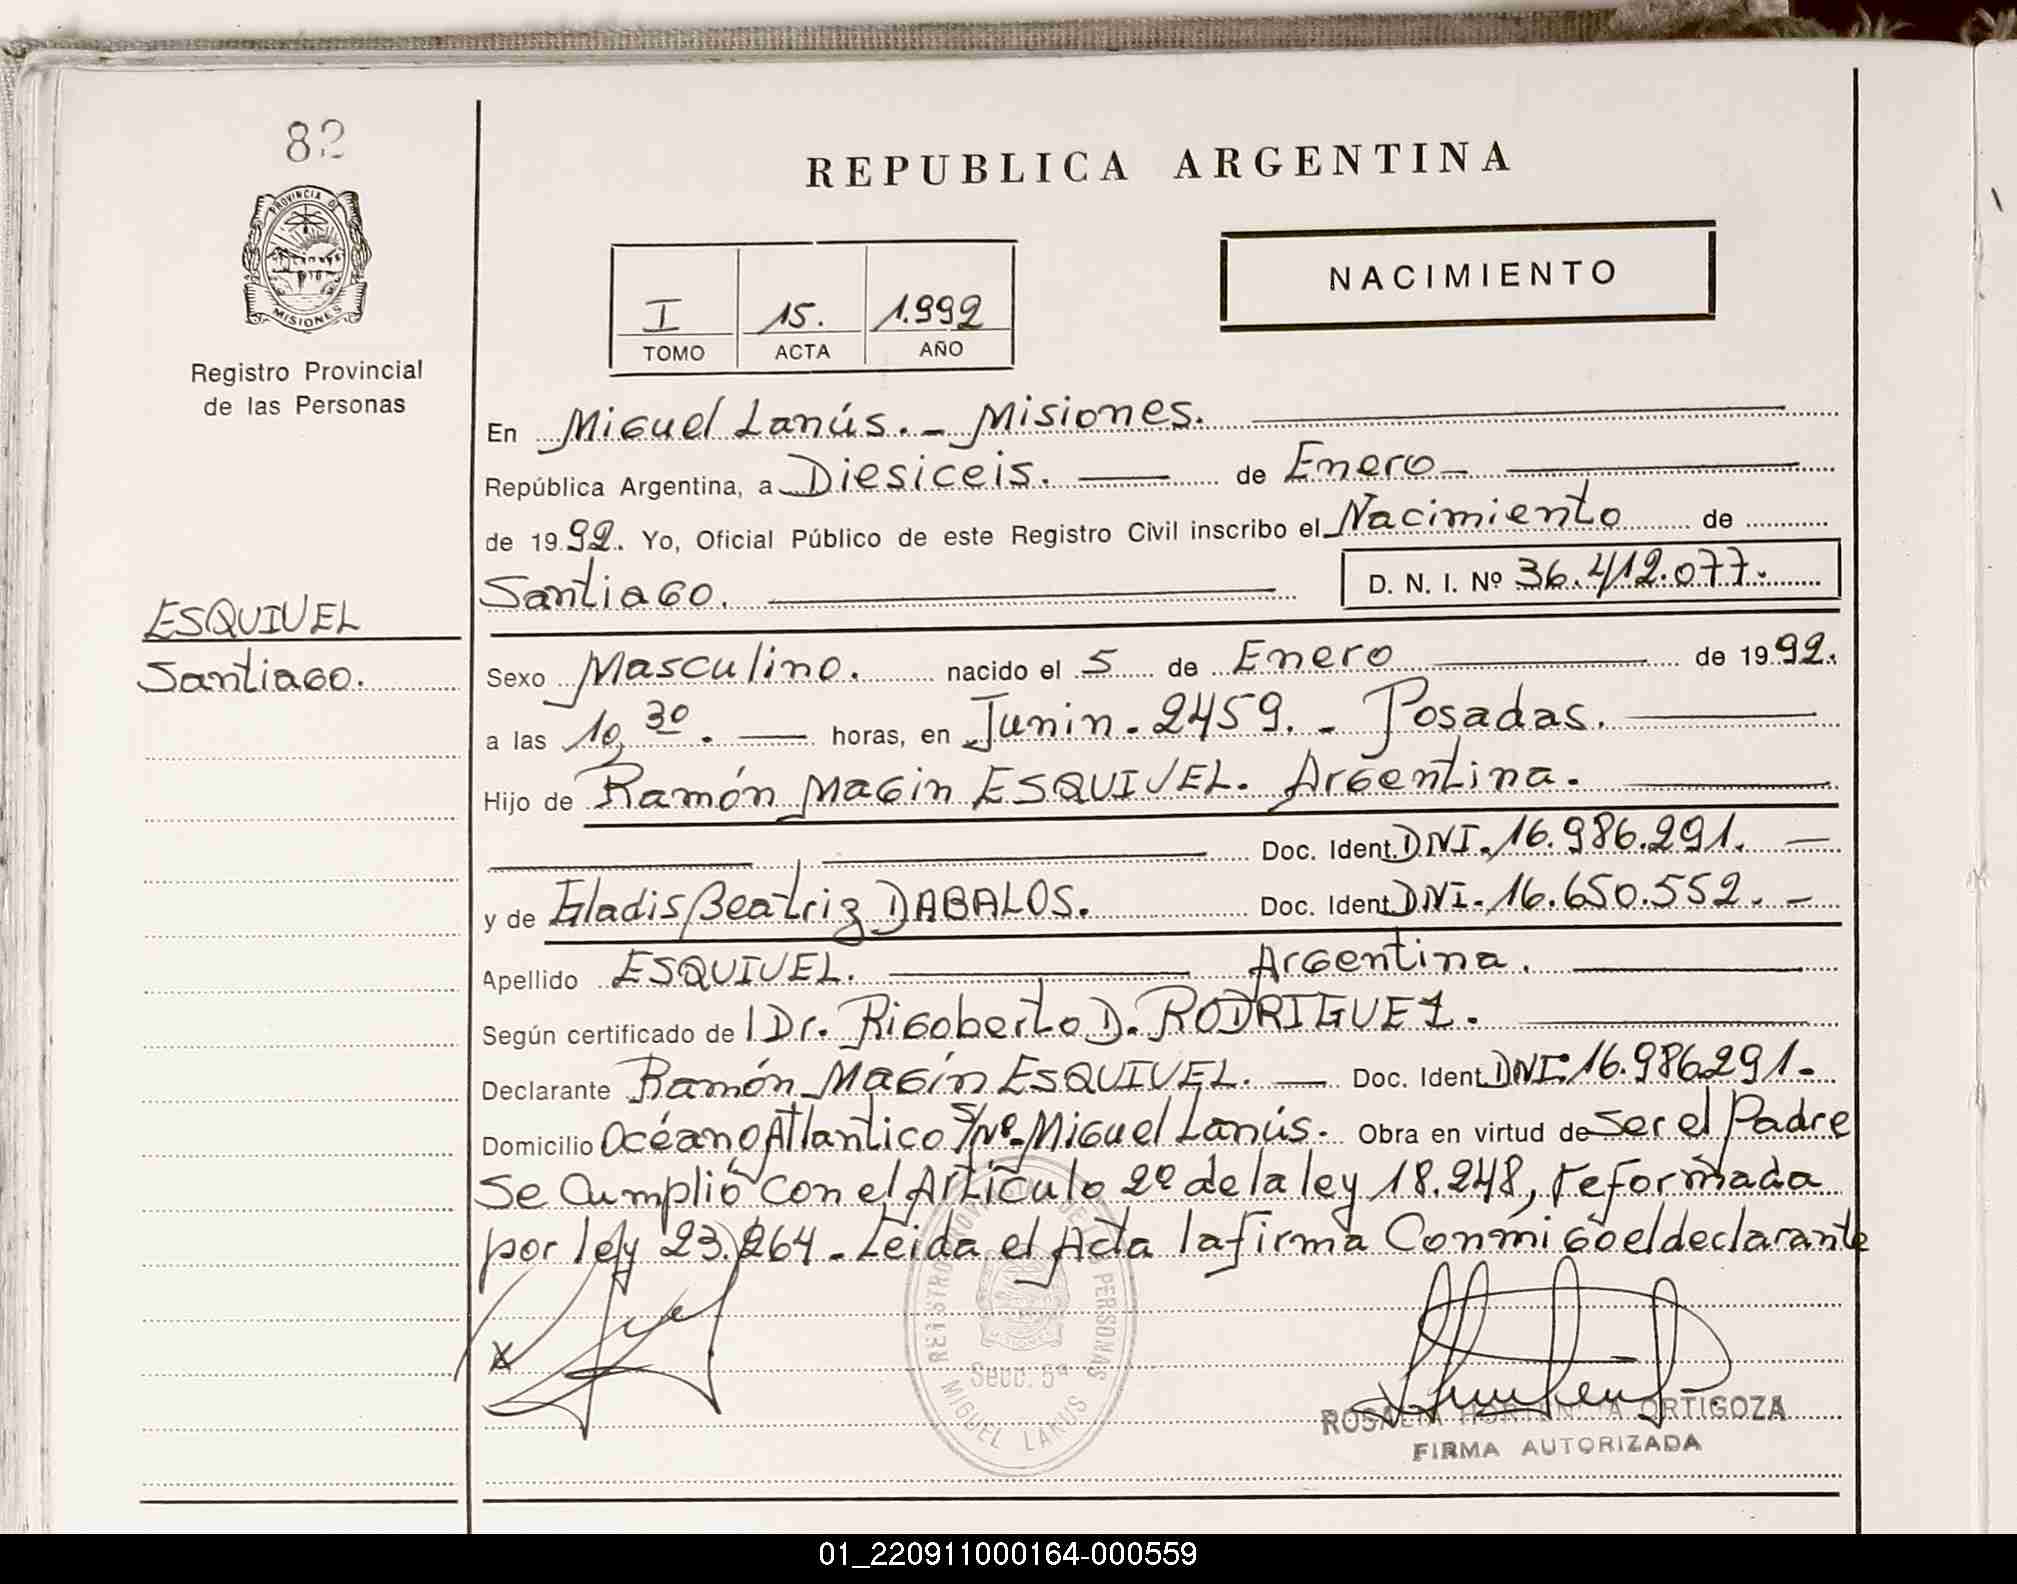 82
REPUBLICA ARGENTINA
PROVINCIA D
MISIONES
NACIMIENTO
I 15. 1.992
TOMO ACTA AÑO
Registro Provincial
de las Personas
En Miguel Lanús. - Misiones.
República Argentina, a Diesiceis. de Enero
de 1992. Yo, Oficial Público de este Registro Civil inscribo el Nacimiento de
Santiago. D. N. I. Nº 36.412.077.
ESQUIVEL
Santiago.
Sexo Masculino. nacido el 5 de Enero de 1992.
a las 10,30. horas, en Junin. 2459. - Posadas.
Hijo de Ramón Magin ESQUIVEL. Argentina.
Doc. Ident. DNI. 16.986.291. -
y de Gladis Beatriz DABALOS. Doc. Ident DNI. 16.650.552. -
Apellido ESQUIVEL. Argentina.
Según certificado de l Dr. Rigoberto D. RODRIGUEZ.
Declarante Ramón Magín ESQUIVEL. Doc. Ident DNI: 16.986.291.
Domicilio Océano Atlantico S/Nº. Miguel Lanús. Obra en virtud de ser el Padre
Se Cumplió con el Artículo 2º de la ley 18.248, reformada
por ley 23.264. Leida el Acta la firma Conmigo el declarante
X
REGISTRO PROVINCIAL DE LAS PERSONAS
Secc. 5ª
MIGUEL LANUS
ROSALIA HORTENCIA ORTIGOZA
FIRMA AUTORIZADA
01_220911000164-000559